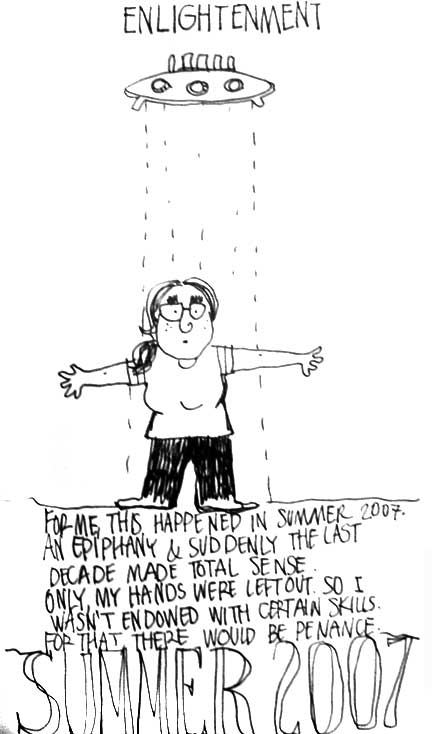 ENLIGHTENMENT
FOR ME, THIS HAPPENED IN SUMMER 2007.
AN EPIPHANY & SUDDENLY THE LAST
DECADE MADE TOTAL SENSE.
ONLY, MY HANDS WERE LEFT OUT. SO I
WASN'T ENDOWED WITH CERTAIN SKILLS.
FOR THAT THERE WOULD BE PENANCE.
SUMMER 2007